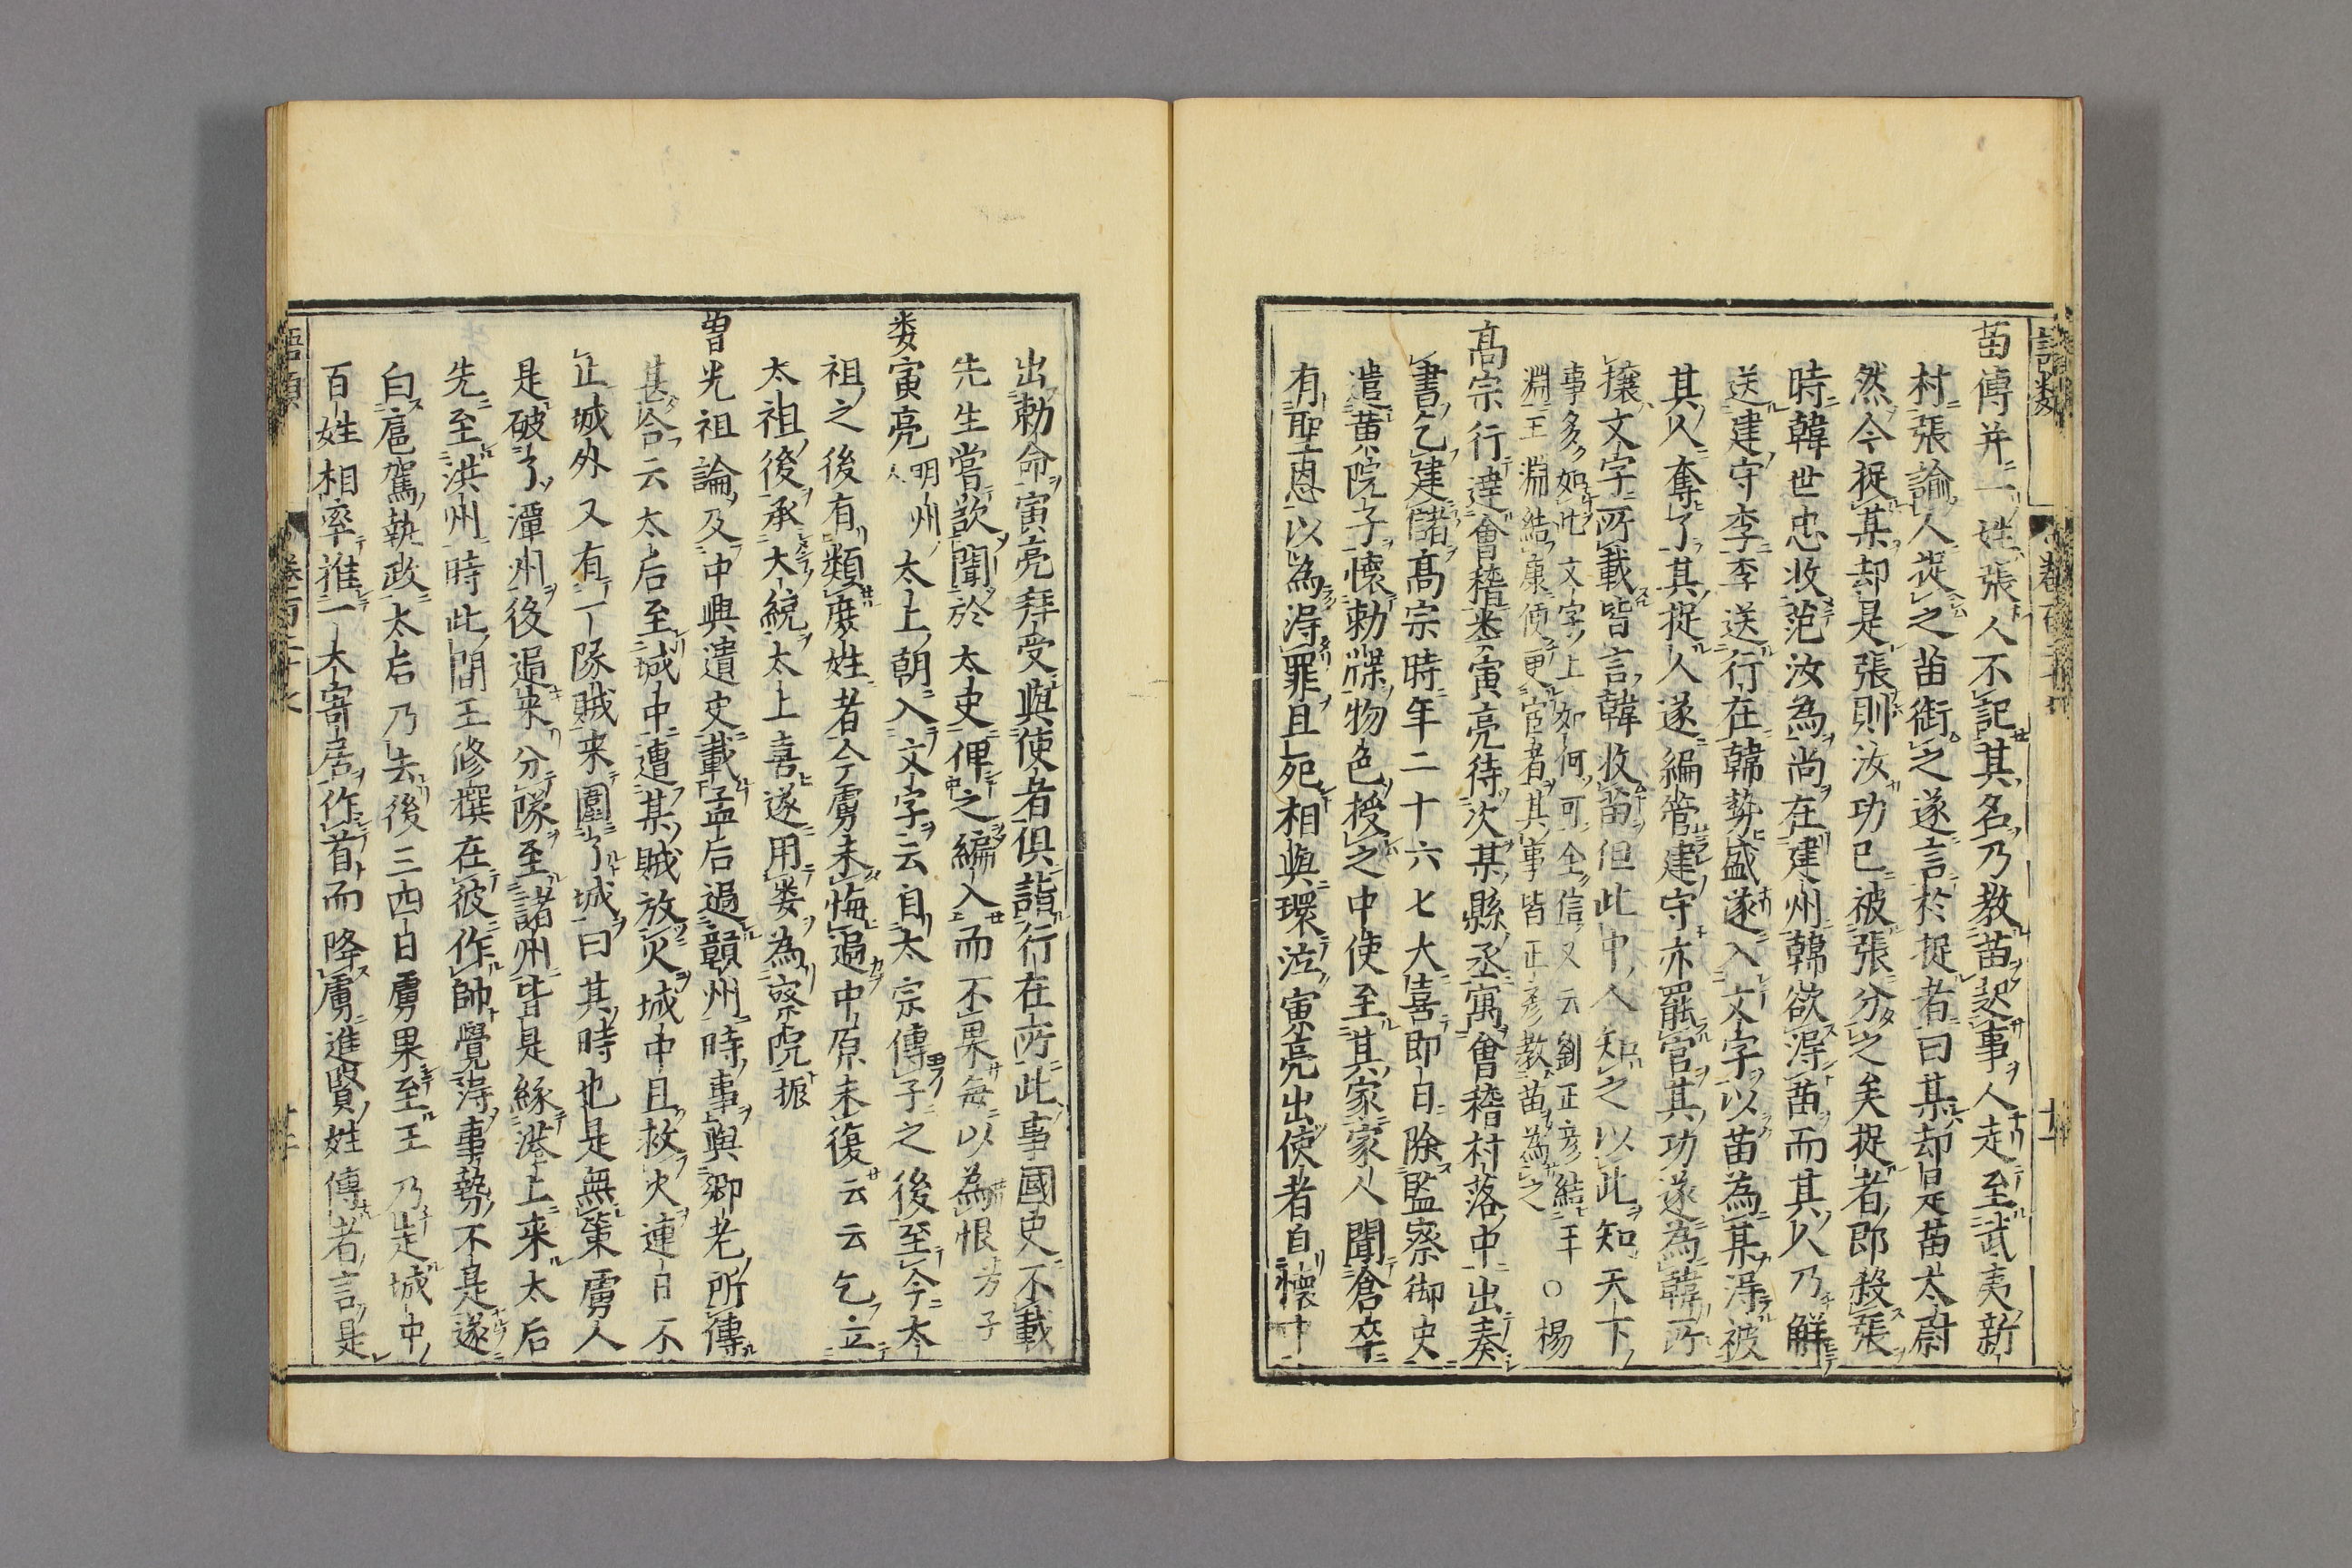 苗傅并一姓張人不記其名乃教苗起事人走至武夷新
村張諭人捉之苗銜之遂言於捉者曰某却是苗太尉
然今捉某却是張則汝功已被張分之矣捉者即殺張
時韓世忠收范汝為尚在建州韓欲得苗而其人乃解
送建守李李送行在韓勢盛遂入文字以苗為某得被
其人奪了其捉人遂編管建守亦罷官其功遂為韓所
攘文字所載皆言韓收苗但此中人知之以此知天下
事多如此文字上如何可全信又云劉正彦結王
淵王淵結康便更宦者其事皆正彦教苗為之
○楊
高宗行達會稽婁寅亮待次某縣丞寓會稽村落中出奏
書乞建儲高宗時年二十六七大喜即日除監察御史
遣黄院子懐勅牒物色授之中使至其家家人聞倉卒
有聖恩以為得罪且死相與環泣寅亮出使者自懐中
出勅命寅亮拜受與使者俱詣行在所此事國史不載
先生嘗欲聞於太史俾之編入而不果每以為恨 方子
婁寅亮 明州人 太上朝入文字云自太宗傳子之後至今太
祖之後有類庶姓者今虜未悔過中原未復云云乞立
太祖後承大統太上喜遂用婁為察院 振
曽光祖論及中興遺史載孟后過贑州時事與鄉老所傳
甚合云太后至城中遭某賊放火城中且救火連日不
止城外又有一隊賊来圍了城曰其時也是無策虜人
是破了潭州後過来分隊至諸州皆是緣港上来太后
先至洪州時此間王修撰在彼作帥覺得事勢不是遂
白扈駕執政太后乃去後三四日虜果至王乃走城中
百姓相率推一大寄居作首而降虜進賢姓傳者言是
語類
卷百二十七